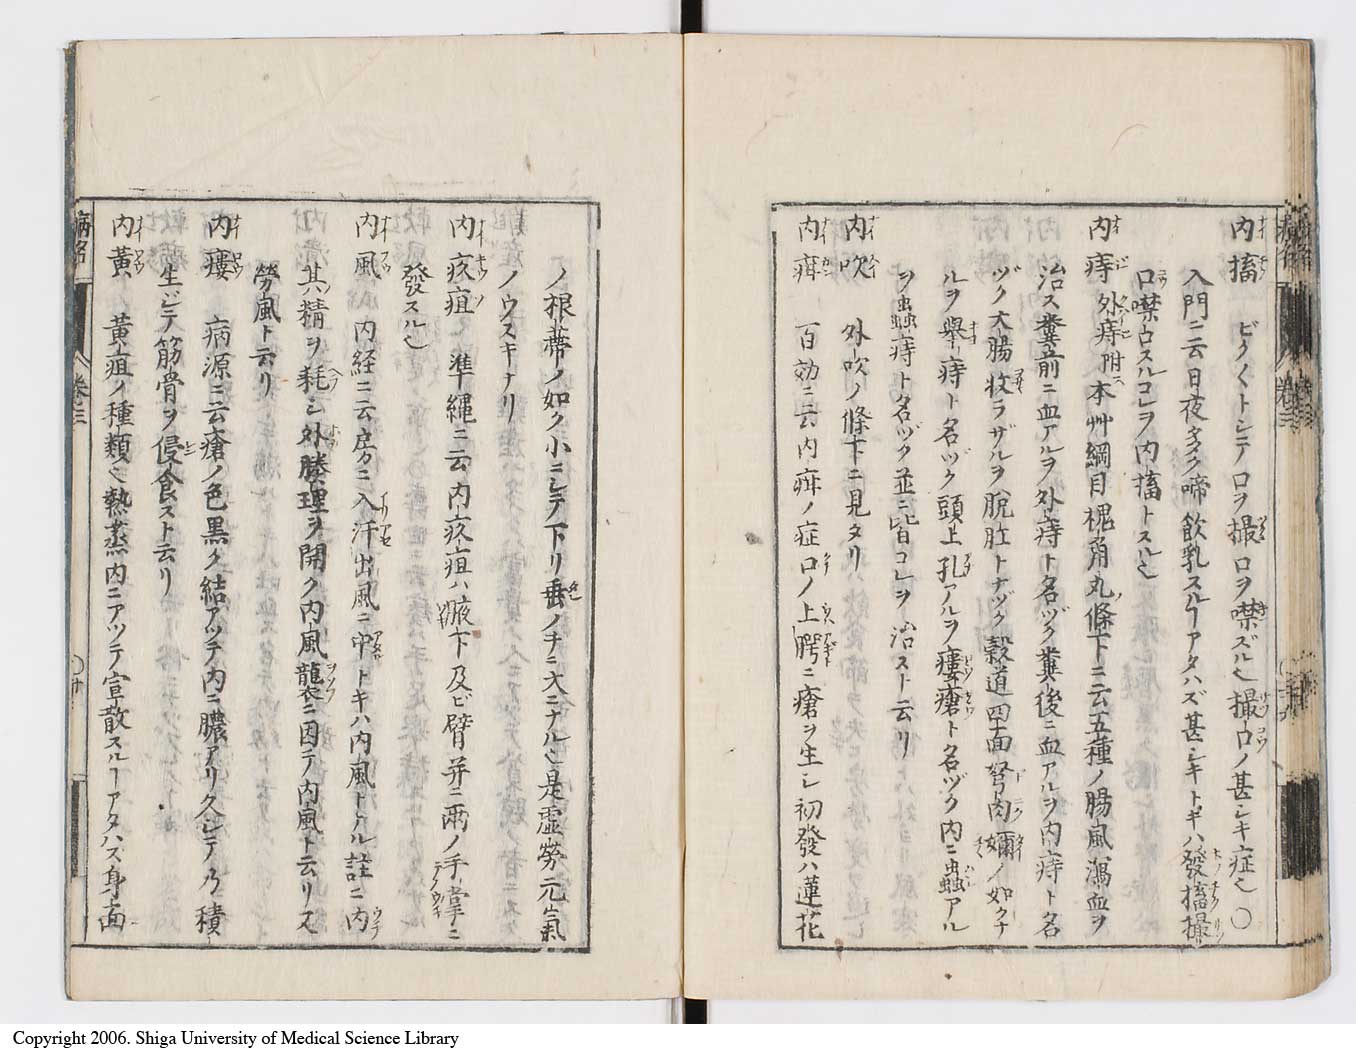 内搐 ビク〱トシテ口ヲ撮口ヲ噤ズル也撮口ノ甚シキ症也〇
入門ニ云日夜多ク啼飲乳スルヿアタハズ甚シキトキハ發搐撮
口噤口スルコレヲ内搐トスル也
内痔 外痔附 本艸綱目槐角丸ノ條下ニ云五種ノ腸風瀉血ヲ
治ス糞前ニ血アルヲ外痔ト名ヅク糞後ニ血アルヲ内痔ト名
ヅク大腸收ラザルヲ脱肛トナヅク穀道四面弩肉嬭ノ如クナ
ルヲ擧痔ト名ヅク頭上孔アルヲ瘻瘡ト名ヅク内ニ蟲アル
ヲ蟲痔ト名ヅク並ニ皆コレヲ治スト云リ
内吹 外吹ノ條下ニ見タリ
内疳 百効ニ云内疳ノ症口ノ上腭ニ瘡ヲ生シ初發ハ蓮花
ノ根蔕ノ如ク小ニシテ下リ垂ノチニ大ニナル也是虚勞元氣
ノウスキナリ
内疚疽 準縄ニ云内疚疽ハ腋下及ビ臂并ニ兩ノ手掌ニ
發スル也
内風 内経ニ云房ニ入汗出風ニ中トキハ内風トナル註ニ内
其精ヲ耗シ外腠理ヲ開ク内風襲ニ因テ内風ト云リ又
勞風ト云リ
内瘻 病源ニ云瘡ノ色黒ク結アツテ内ニ膿アリ久シテ乃積
生ジテ筋骨ヲ侵食スト云リ
内黃 黃疸ノ種類也熱蒸内ニアツテ宣散スルヿアタハズ身面
病名 卷三
Copyright 2006. Shiga University of Medical Science Library